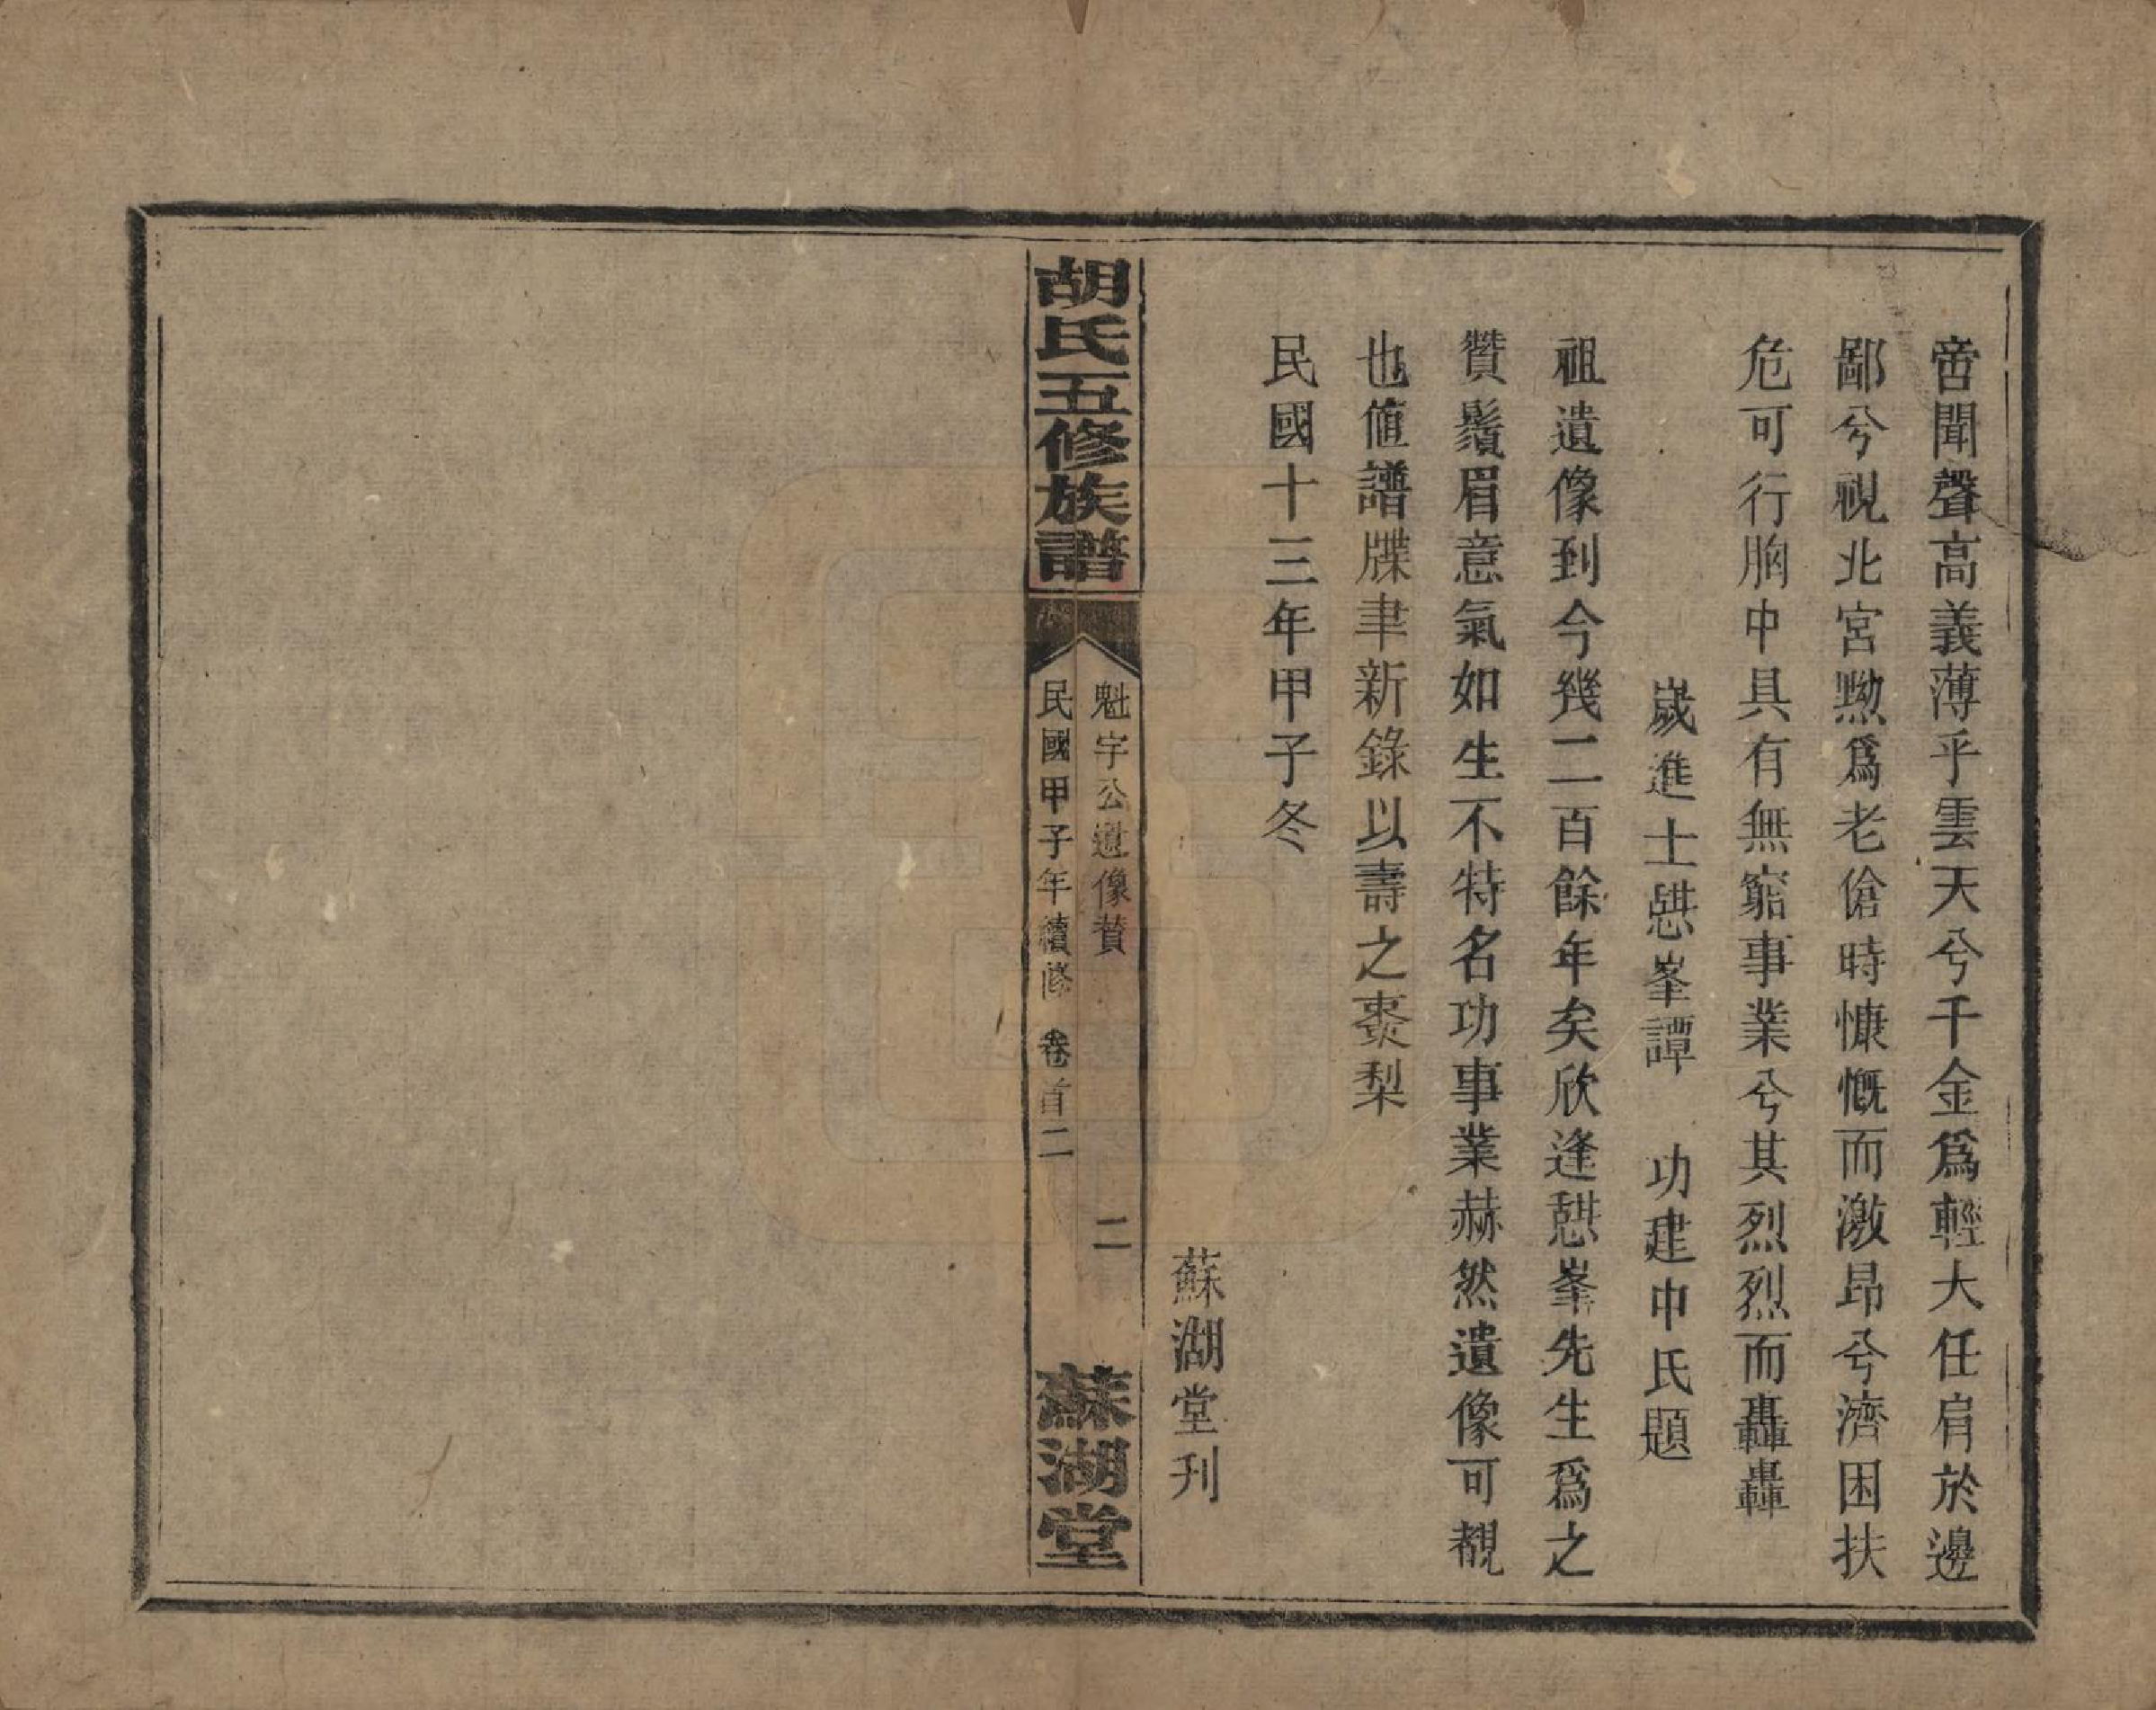 啻聞聲高義薄乎雲天兮千金爲輕大任肩於邊
鄙兮視北宮黝爲老傖時慷慨而激昂兮濟困扶
危可行胸中具有無窮事業兮其烈烈而轟轟
歲進士㥛峯譚 功建中氏題
祖遺像到今幾二百餘年矣欣逢㥛峯先生爲之
贊鬚眉意氣如生不特名功事業赫然遺像可覩
也値譜牒聿新錄以壽之棗梨
民國十三年甲子冬
蘇湖堂刊
胡氏五修族譜
魁宇公遺像贊 二
民國甲子年續修 卷首二
蘇湖堂